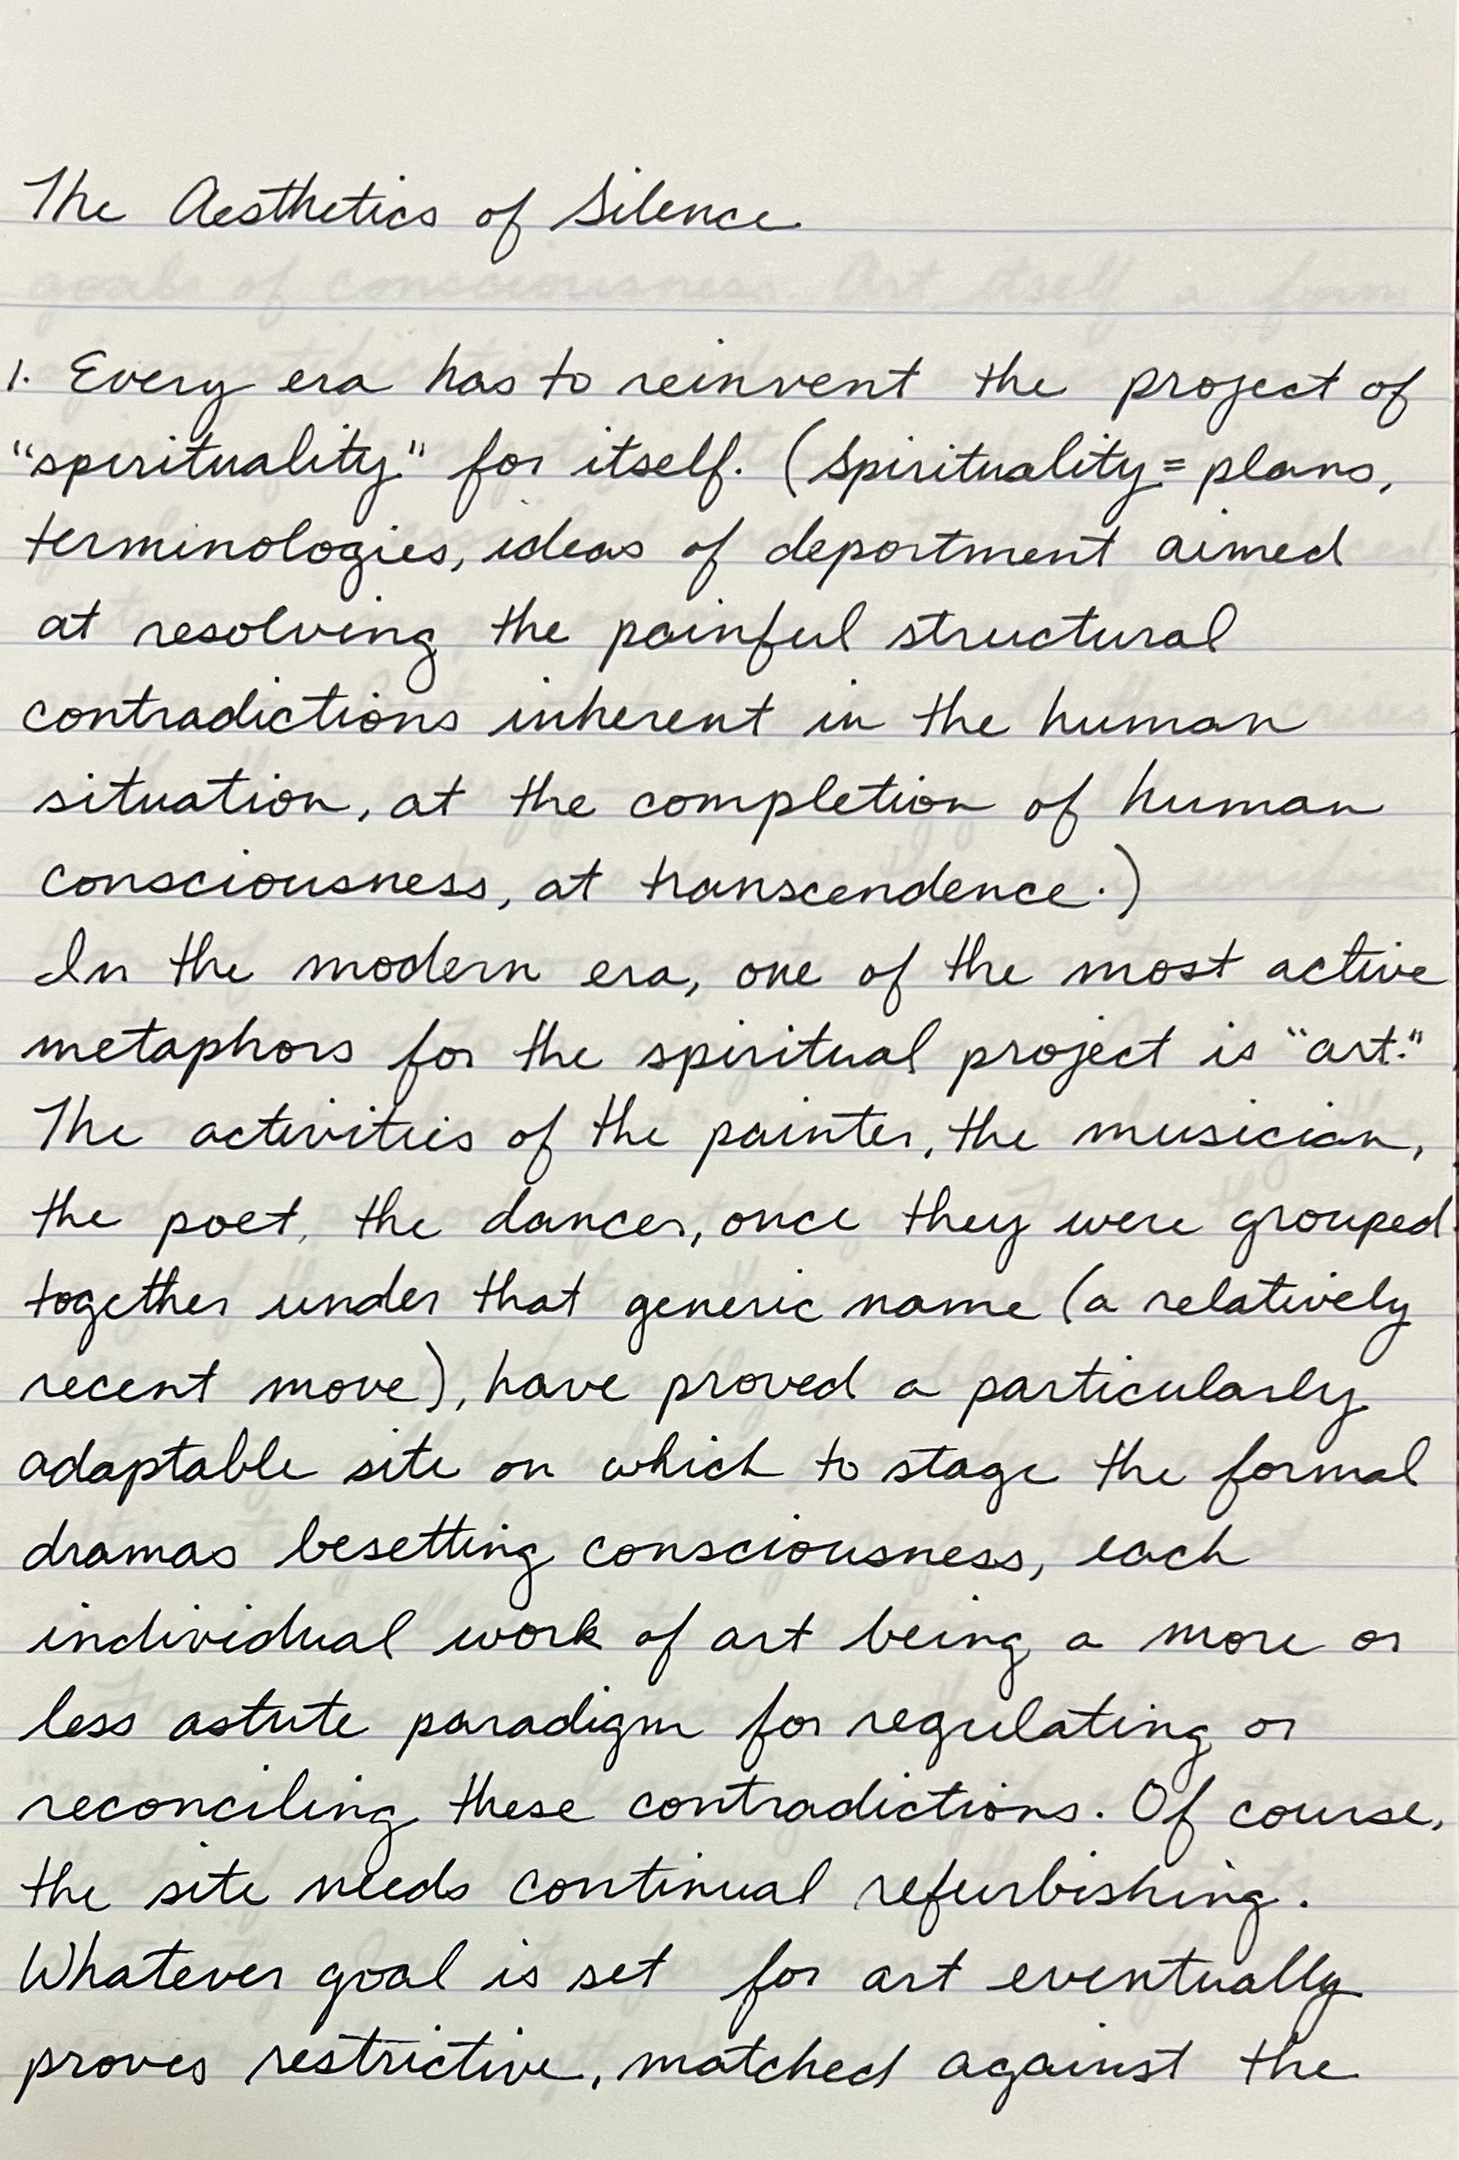 The Aesthetics of Silence
1. Every era has to reinvent the project of
"spirituality" for itself. (Spirituality = plans,
terminologies, ideas of deportment aimed
at resolving the painful structural
contradictions inherent in the human
situation, at the completion of human
consciousness, at transcendence.)
In the modern era, one of the most active
metaphors for the spiritual project is "art."
The activities of the painter, the musician,
the poet, the dancer, once they were grouped
together under that generic name (a relatively
recent move), have proved a particularly
adaptable site on which to stage the formal
dramas besetting consciousness, each
individual work of art being a more or
less astute paradigm for regulating or
reconciling these contradictions. Of course,
the site needs continual refurbishing.
Whatever goal is set for art eventually
proves restrictive, matched against the